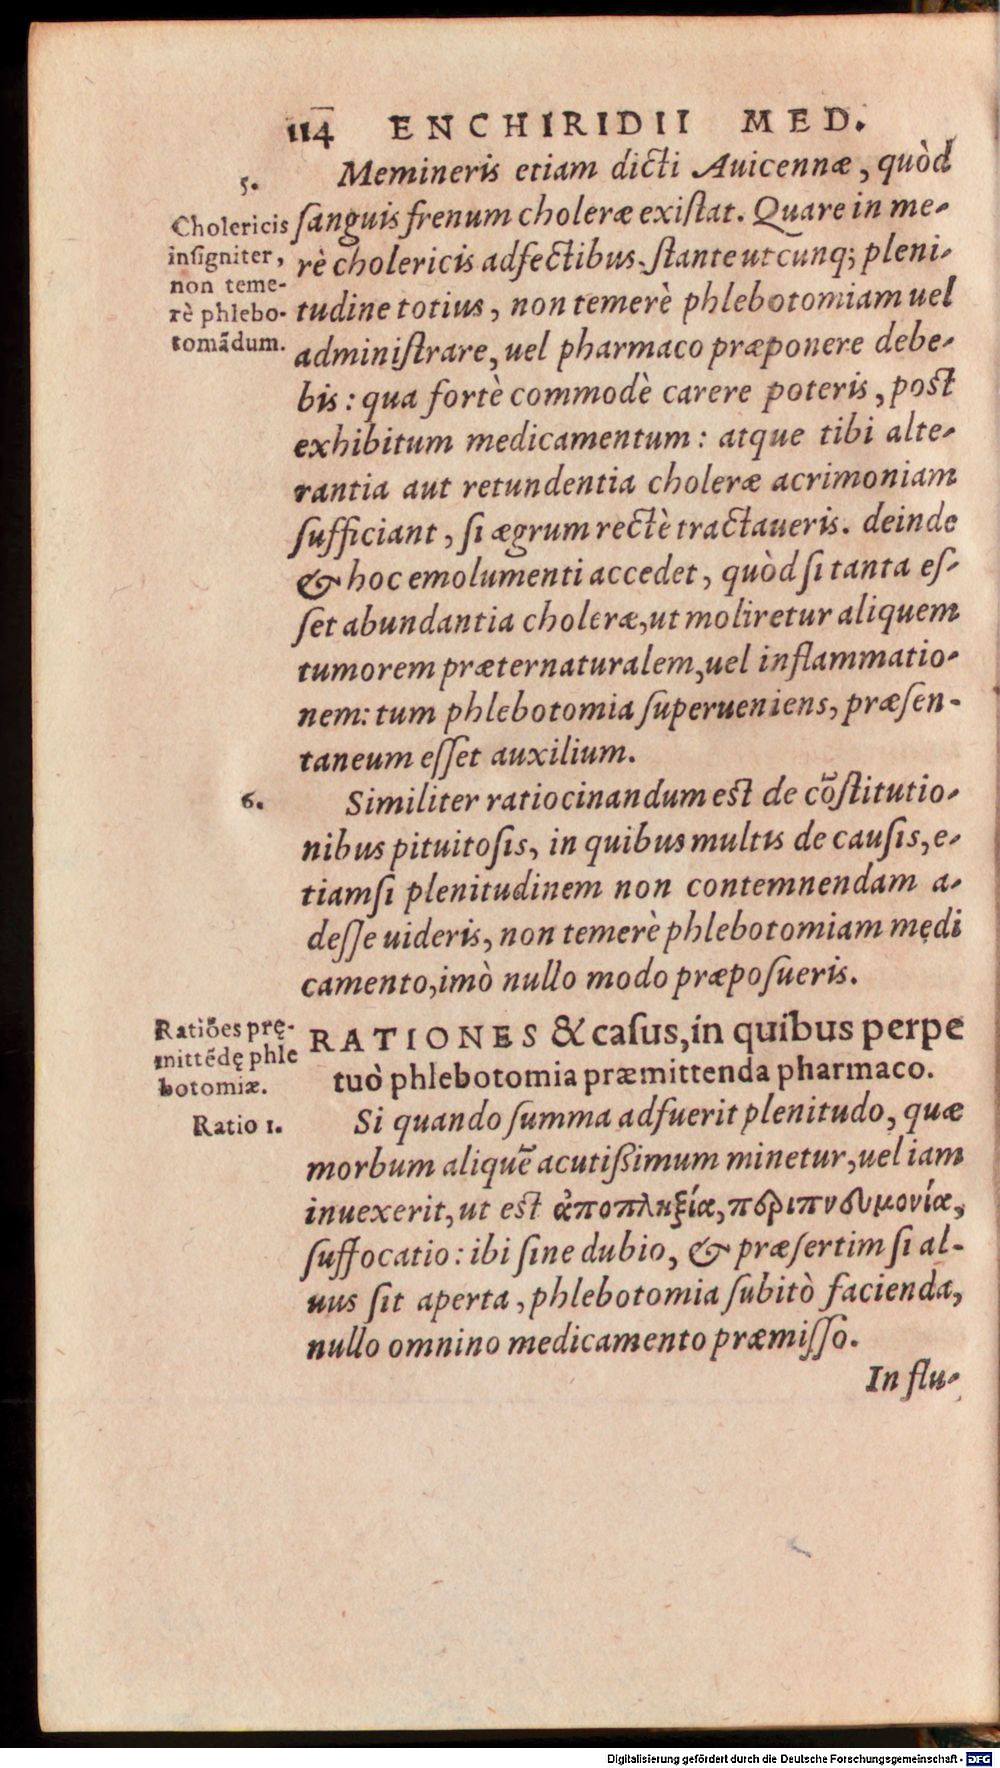 114 ENCHIRIDII MED.
5.
Cholericis
insigniter,
non teme-
rè phlebo-
tomãdum.
Memineris etiam dicti Auicennæ, quòd
sanguis frenum choleræ existat. Quare in me-
rè cholericis adfectibus, stante utcunq; pleni-
tudine totius, non temerè phlebotomiam uel
administrare, uel pharmaco præponere debe-
bis: qua fortè commodè carere poteris, post
exhibitum medicamentum: atque tibi alte-
rantia aut retundentia choleræ acrimoniam
sufficiant, si ægrum rectè tractaueris. deinde
& hoc emolumenti accedet, quòd si tanta es-
set abundantia choleræ, ut moliretur aliquem
tumorem præternaturalem, uel inflammatio-
nem: tum phlebotomia superueniens, præsen-
taneum esset auxilium.
6.
Similiter ratiocinandum est de cõstitutio-
nibus pituitosis, in quibus multis de causis, e-
tiamsi plenitudinem non contemnendam a-
desse uideris, non temerè phlebotomiam medi
camento, imò nullo modo præposueris.
Ratiões prę-
mittẽdę phle
botomiæ.
RATIONES & casus, in quibus perpe
tuò phlebotomia præmittenda pharmaco.
Ratio 1.
Si quando summa adfuerit plenitudo, quæ
morbum aliquẽ acutißimum minetur, uel iam
inuexerit, ut est ἀποπληξία, περιπνευμονία,
suffocatio: ibi sine dubio, & præsertim si al-
uus sit aperta, phlebotomia subitò facienda,
nullo omnino medicamento præmisso.
In flu-
Digitalisierung gefördert durch die Deutsche Forschungsgemeinschaft - DFG